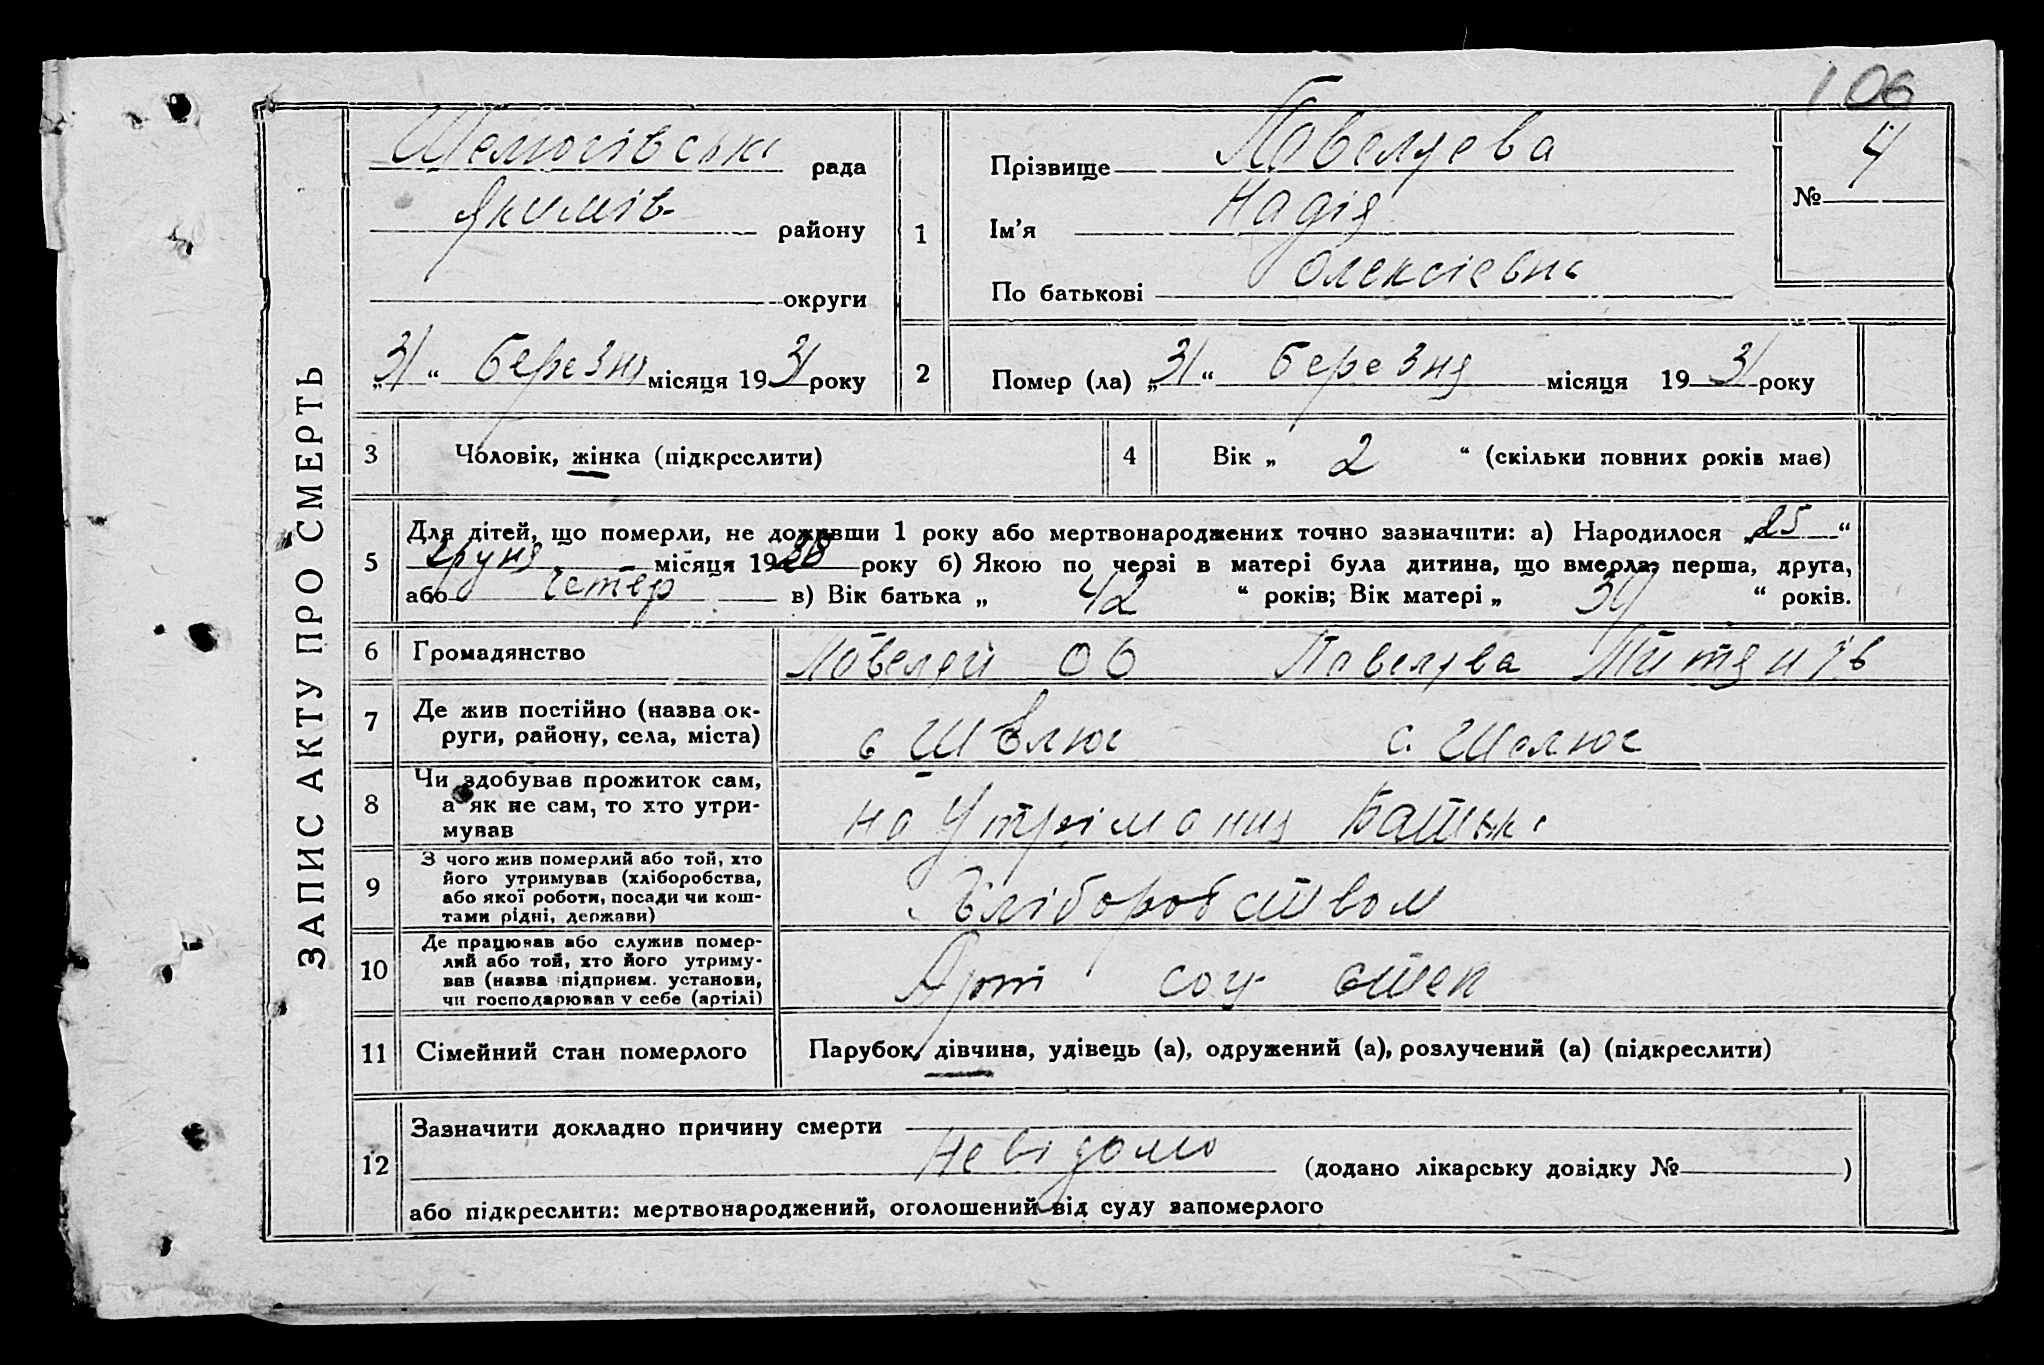 106
ЗАПИС АКТУ ПРО СМЕРТЬ
Шелюгівські рада
Якимів- району
округи
„31“ березня місяця 1931 року
1
Прізвище Павелуева
Ім'я Надія
По батькові Олексієвна
№ 4
2 Помер (ла) „31“ березня місяця 1931 року
3 Чоловік, жінка (підкреслити)
4 Вік „ 2 “ (скільки повних років має)
5 Для дітей, що померли, не доживши 1 року або мертвонароджених точно зазначити: а) Народилося „25“
грудня місяця 1928 року б) Якою по черзі в матері була дитина, що вмерла: перша, друга,
або четвер в) Вік батька „ 42 “ років; Вік матері „ 39 “ років.
6 Громадянство
7 Де жив постійно (назва ок-
руги, району, села, міста)
с Шелюг с. Шелюг
8 Чи здобував прожиток сам,
а як не сам, то хто утри-
мував
на утрімання батька
9 З чого жив померлий або той, хто
його утримував (хліборобства,
або якої роботи, посади чи кош-
тами рідні, держави)
Хліборобством
10 Де працював або служив помер-
лий або той, хто його утриму-
вав (назва підприєм. установи,
чи господарював у себе (артілі)
Арт соц степ
11 Сімейний стан померлого
Парубок, дівчина, удівець (а), одружений (а), розлучений (а) (підкреслити)
12 Зазначити докладно причину смерти
невідомо (додано лікарську довідку № )
або підкреслити: мертвонароджений, оголошений від суду запомерлого